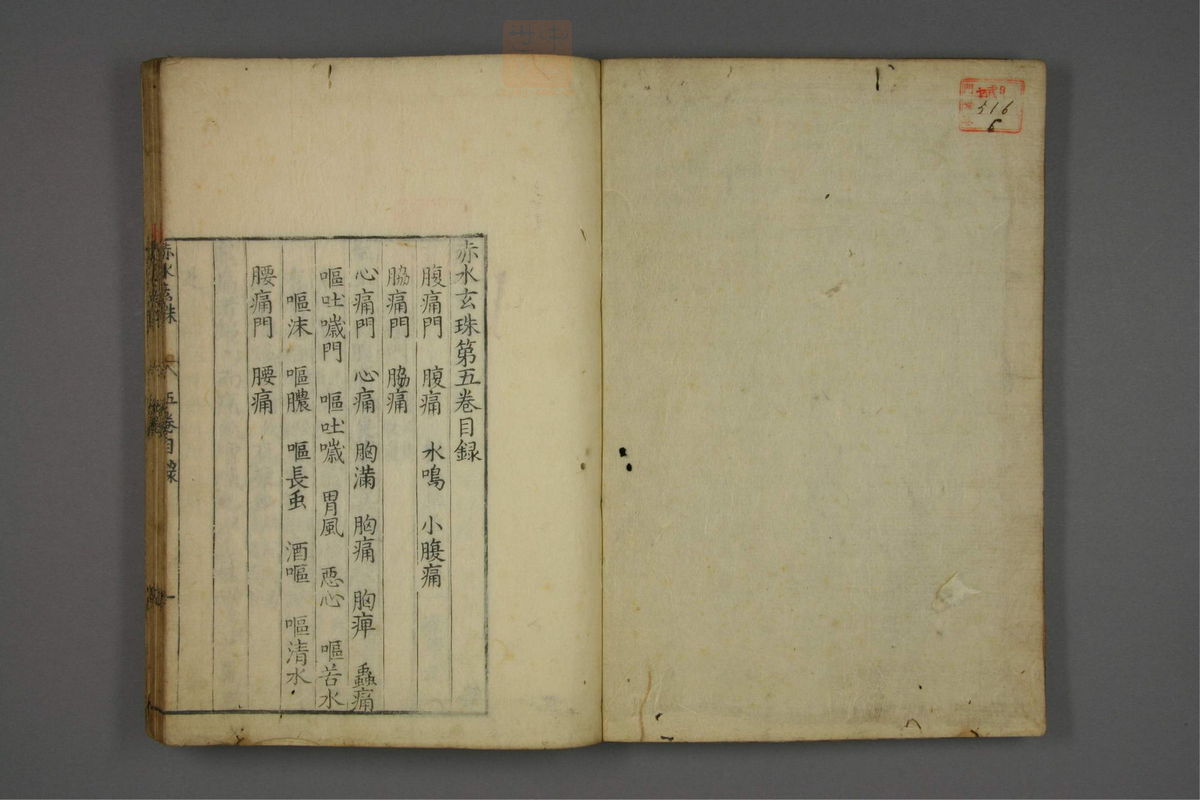 赤水玄珠第五卷目録
腹痛門 腹痛 水鳴 小腹痛
脇痛門 脇痛
心痛門 心痛 胸滿 胸痛 胸痺 蟲痛
嘔吐噦門 嘔吐噦 胃風 惡心 嘔苦水
嘔沫 嘔膿 嘔長虫 酒嘔 嘔清水
腰痛門 腰痛
赤水玄珠 五卷目録 一
516